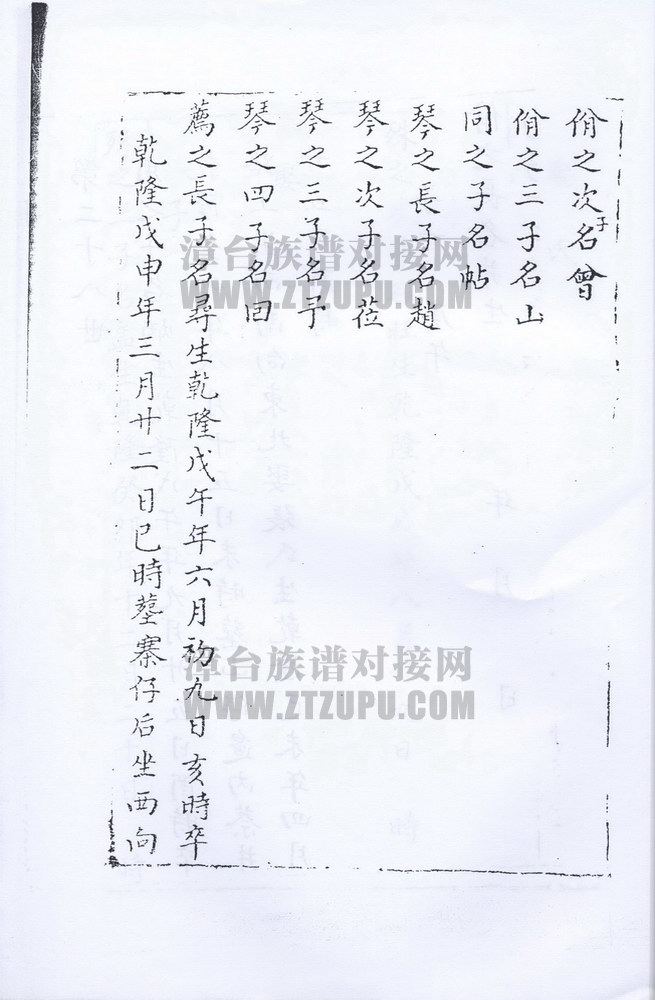 佾之次子名曾
佾之三子名山
同之子名帖
琴之長子名趙
琴之次子名莅
琴之三子名予
琴之四子名
薦之長子名尋生乾隆戊午年六月初九日亥時卒
乾隆戊申年三月廿二日巳時墓寨仔后坐西向
漳台族谱对接网
WWW.ZTZUPU.COM
漳台族谱对接网
WWW.ZTZUPU.COM